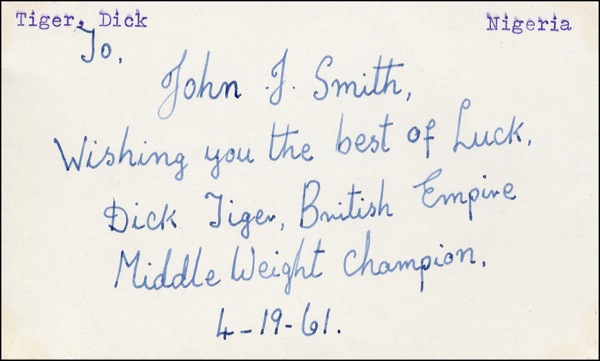 Tiger, Dick
Nigeria
To,
John J. Smith,
Wishing you the best of Luck.
Dick Tiger, British Empire
Middle Weight Champion.
4-19-61.